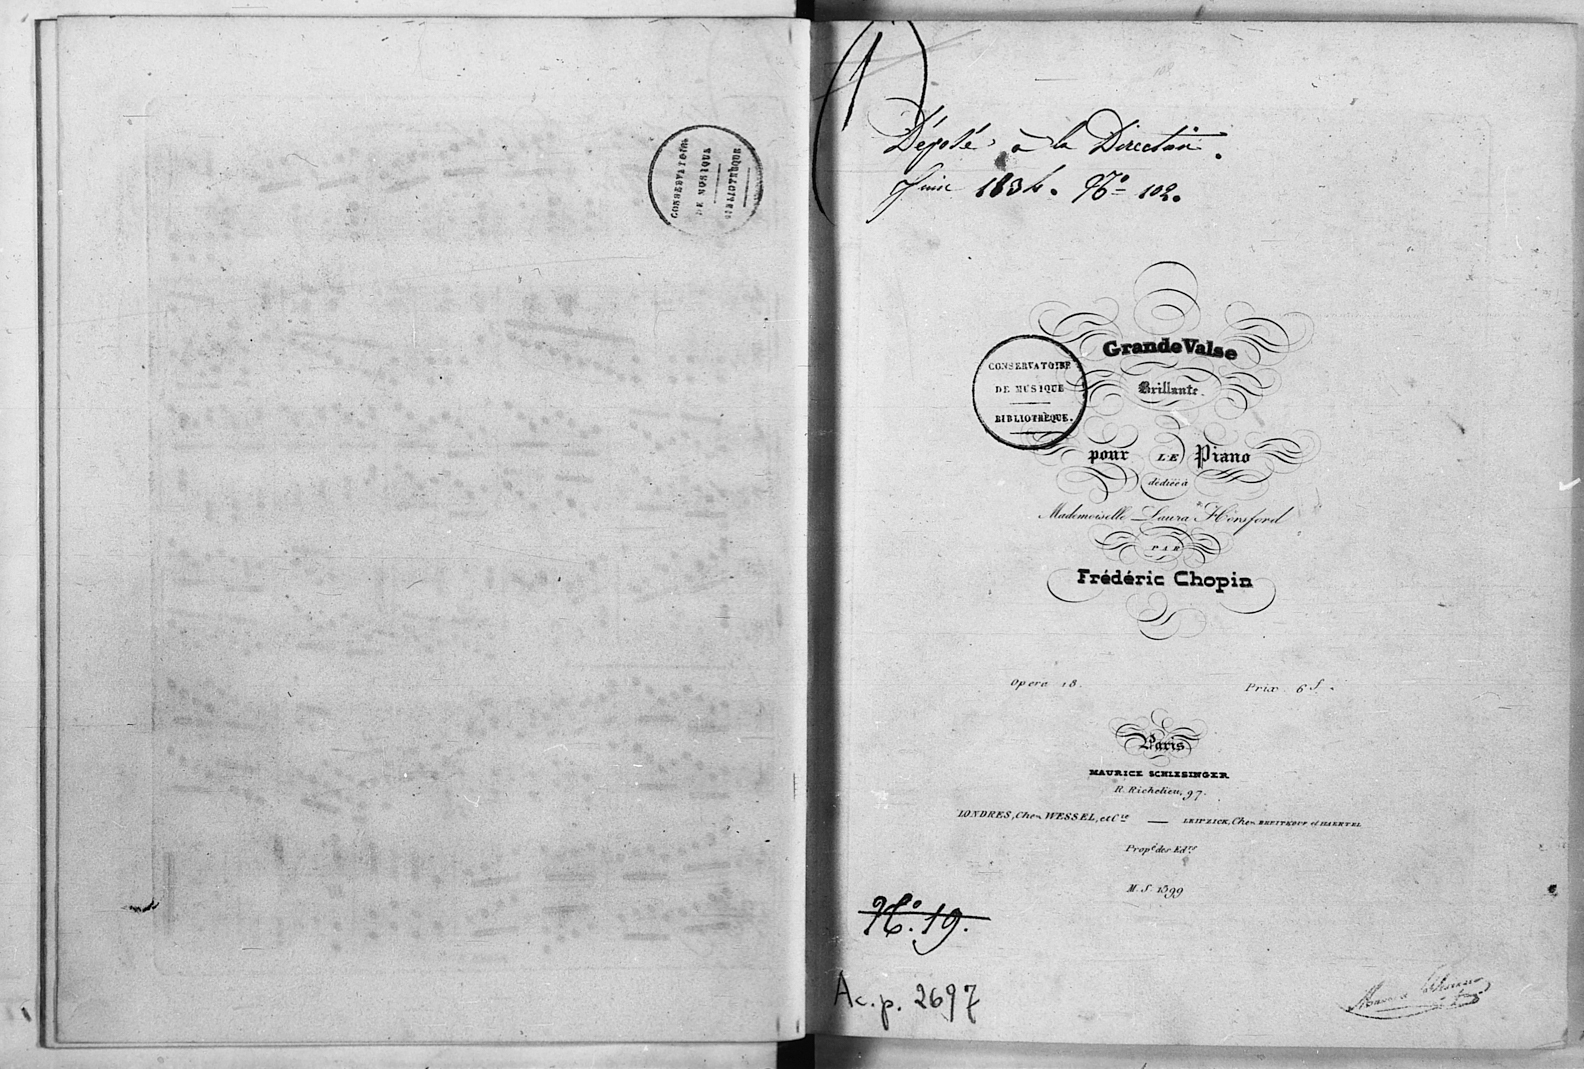 CONSERVATOIRE
DE MUSIQUE
BIBLIOTHÈQUE
1
Déposé à la Direction.
Juin 1834. Nº 102.
Grande Valse
Brillante.
CONSERVATOIRE
DE MUSIQUE
BIBLIOTHÈQUE.
pour LE Piano
dédiée à
Mademoiselle Laura Horsford
PAR
Frédéric Chopin
Opera 18.
Prix 6 f.
Paris
MAURICE SCHLESINGER
R. Richelieu, 97.
LONDRES, Chez WESSEL, et Cie — LEIPZICK, Chez BREITKOPF et HAERTEL
Propé des Edrs
M. S. 1599
Nº. 19.
Ac. p. 2697